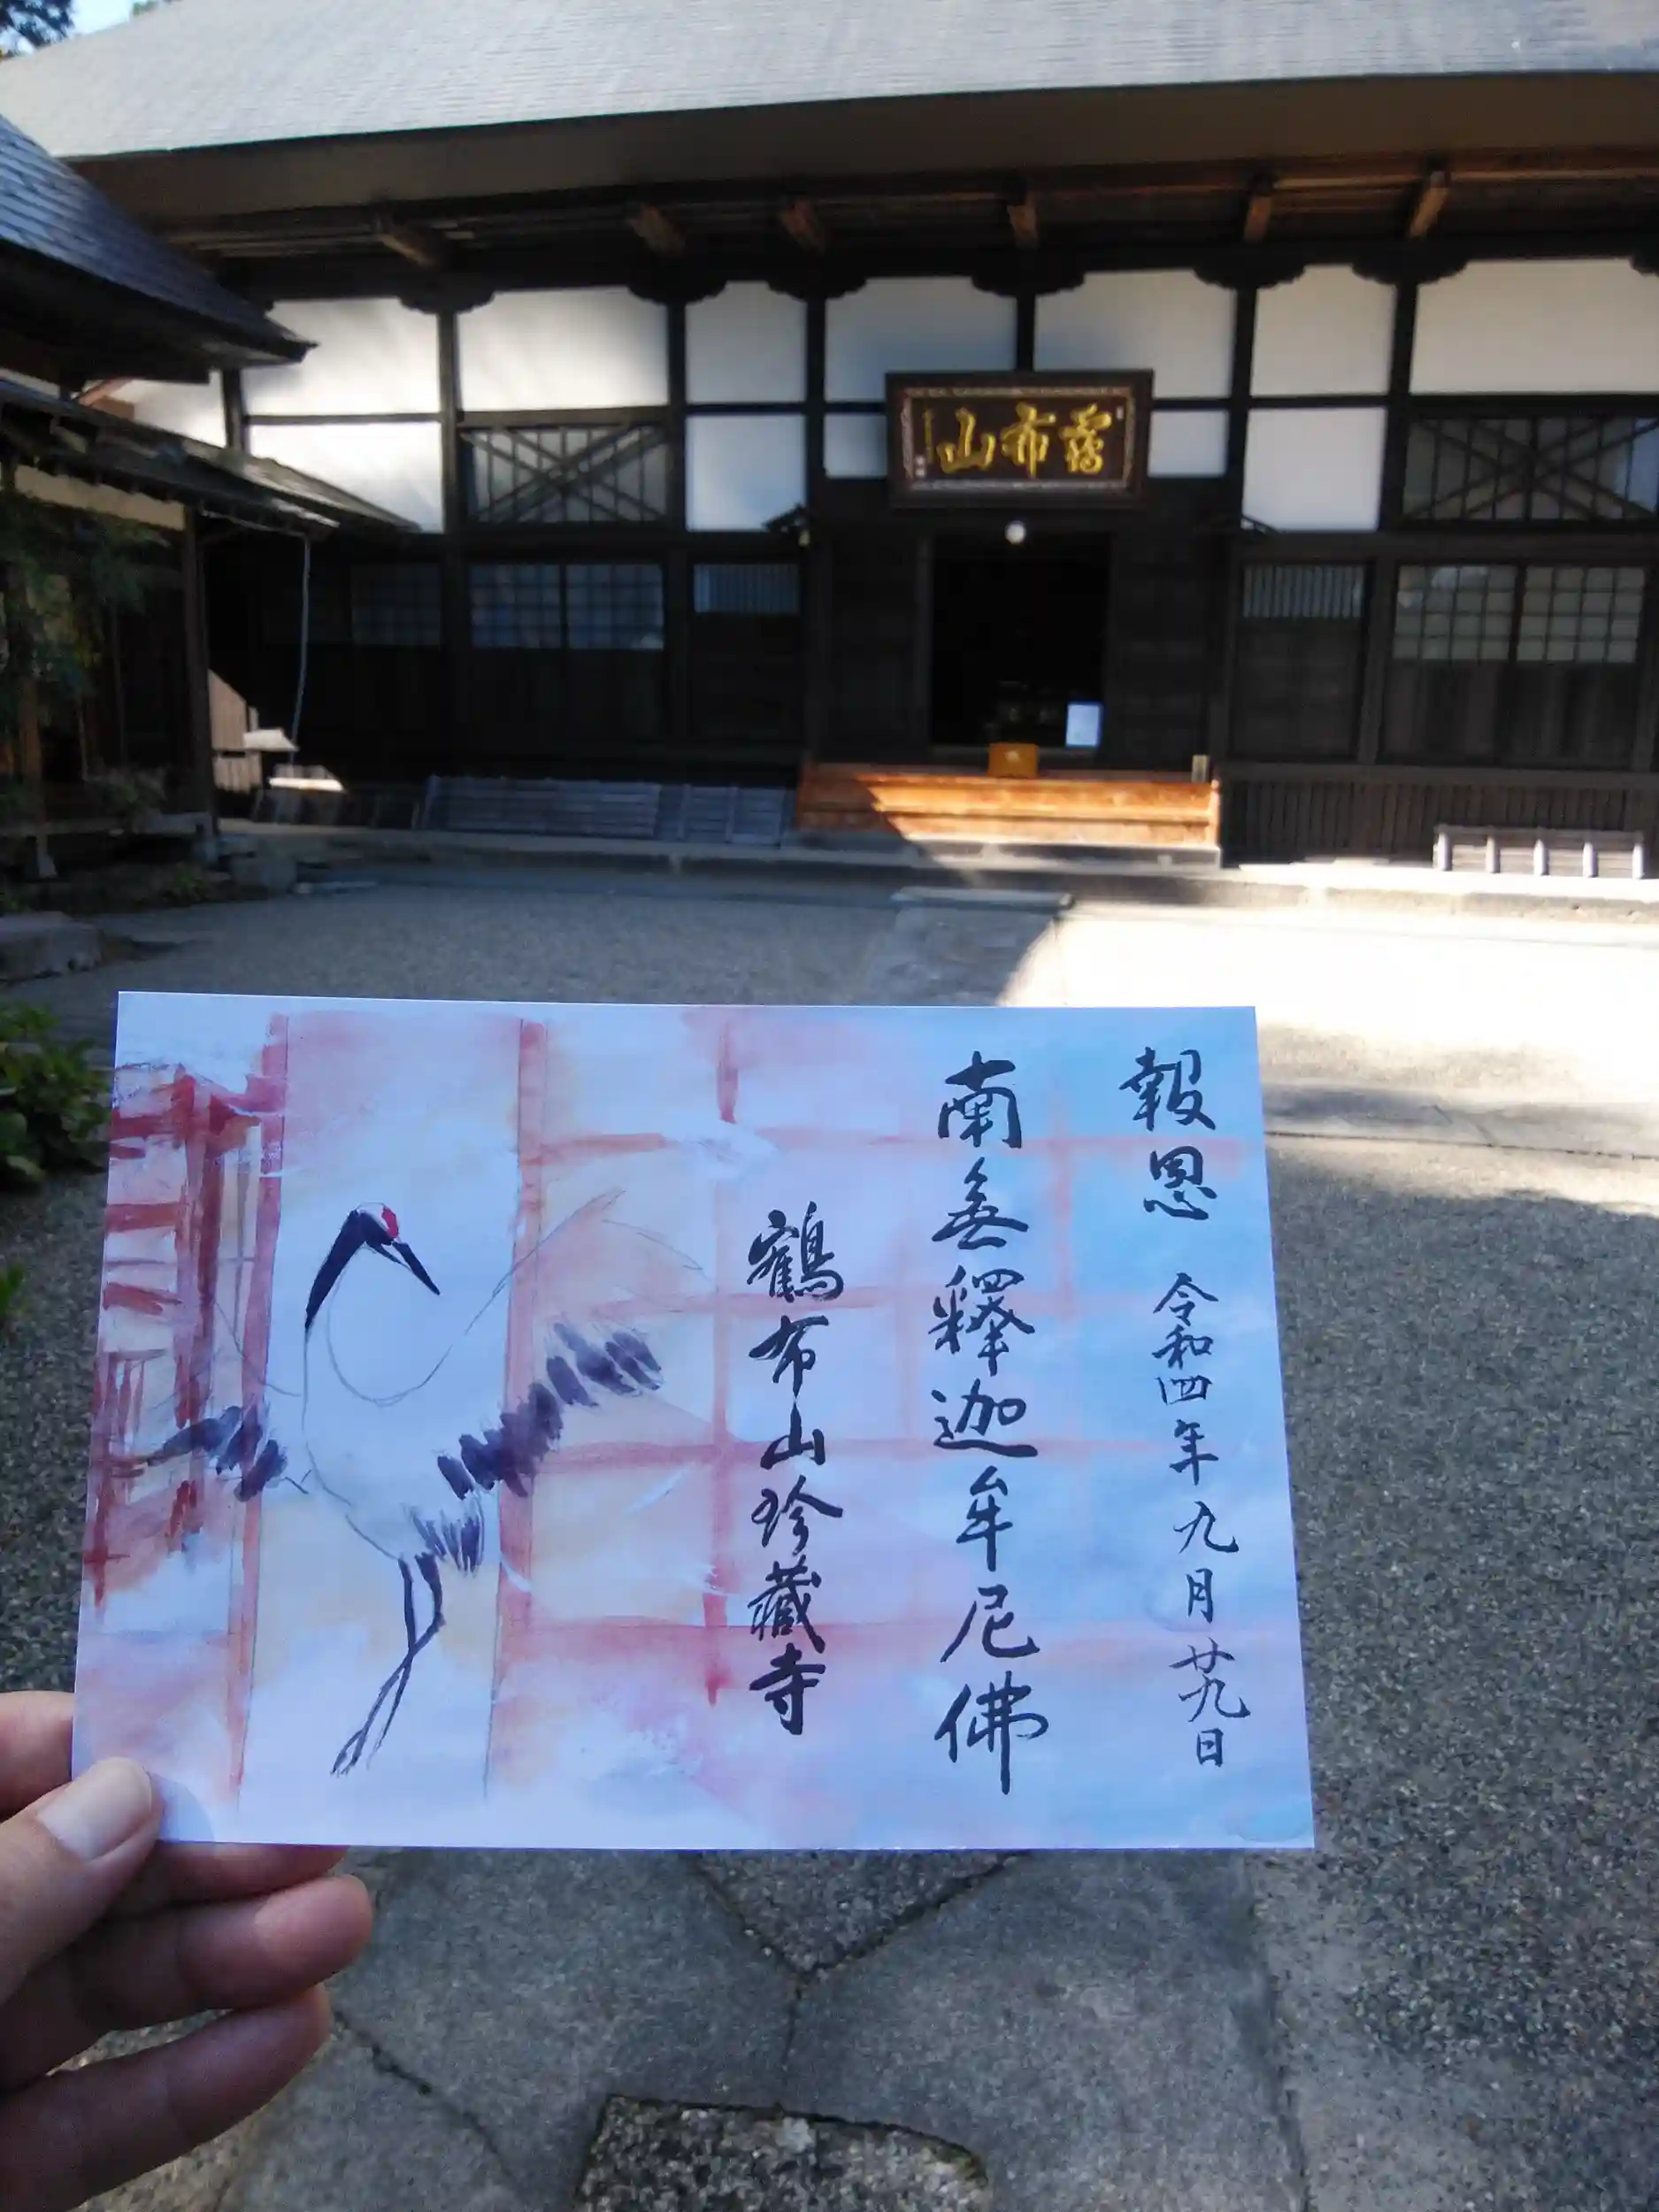 鶴布山
報恩 令和四年九月廿九日
南無釋迦牟尼佛
鶴布山珍藏寺